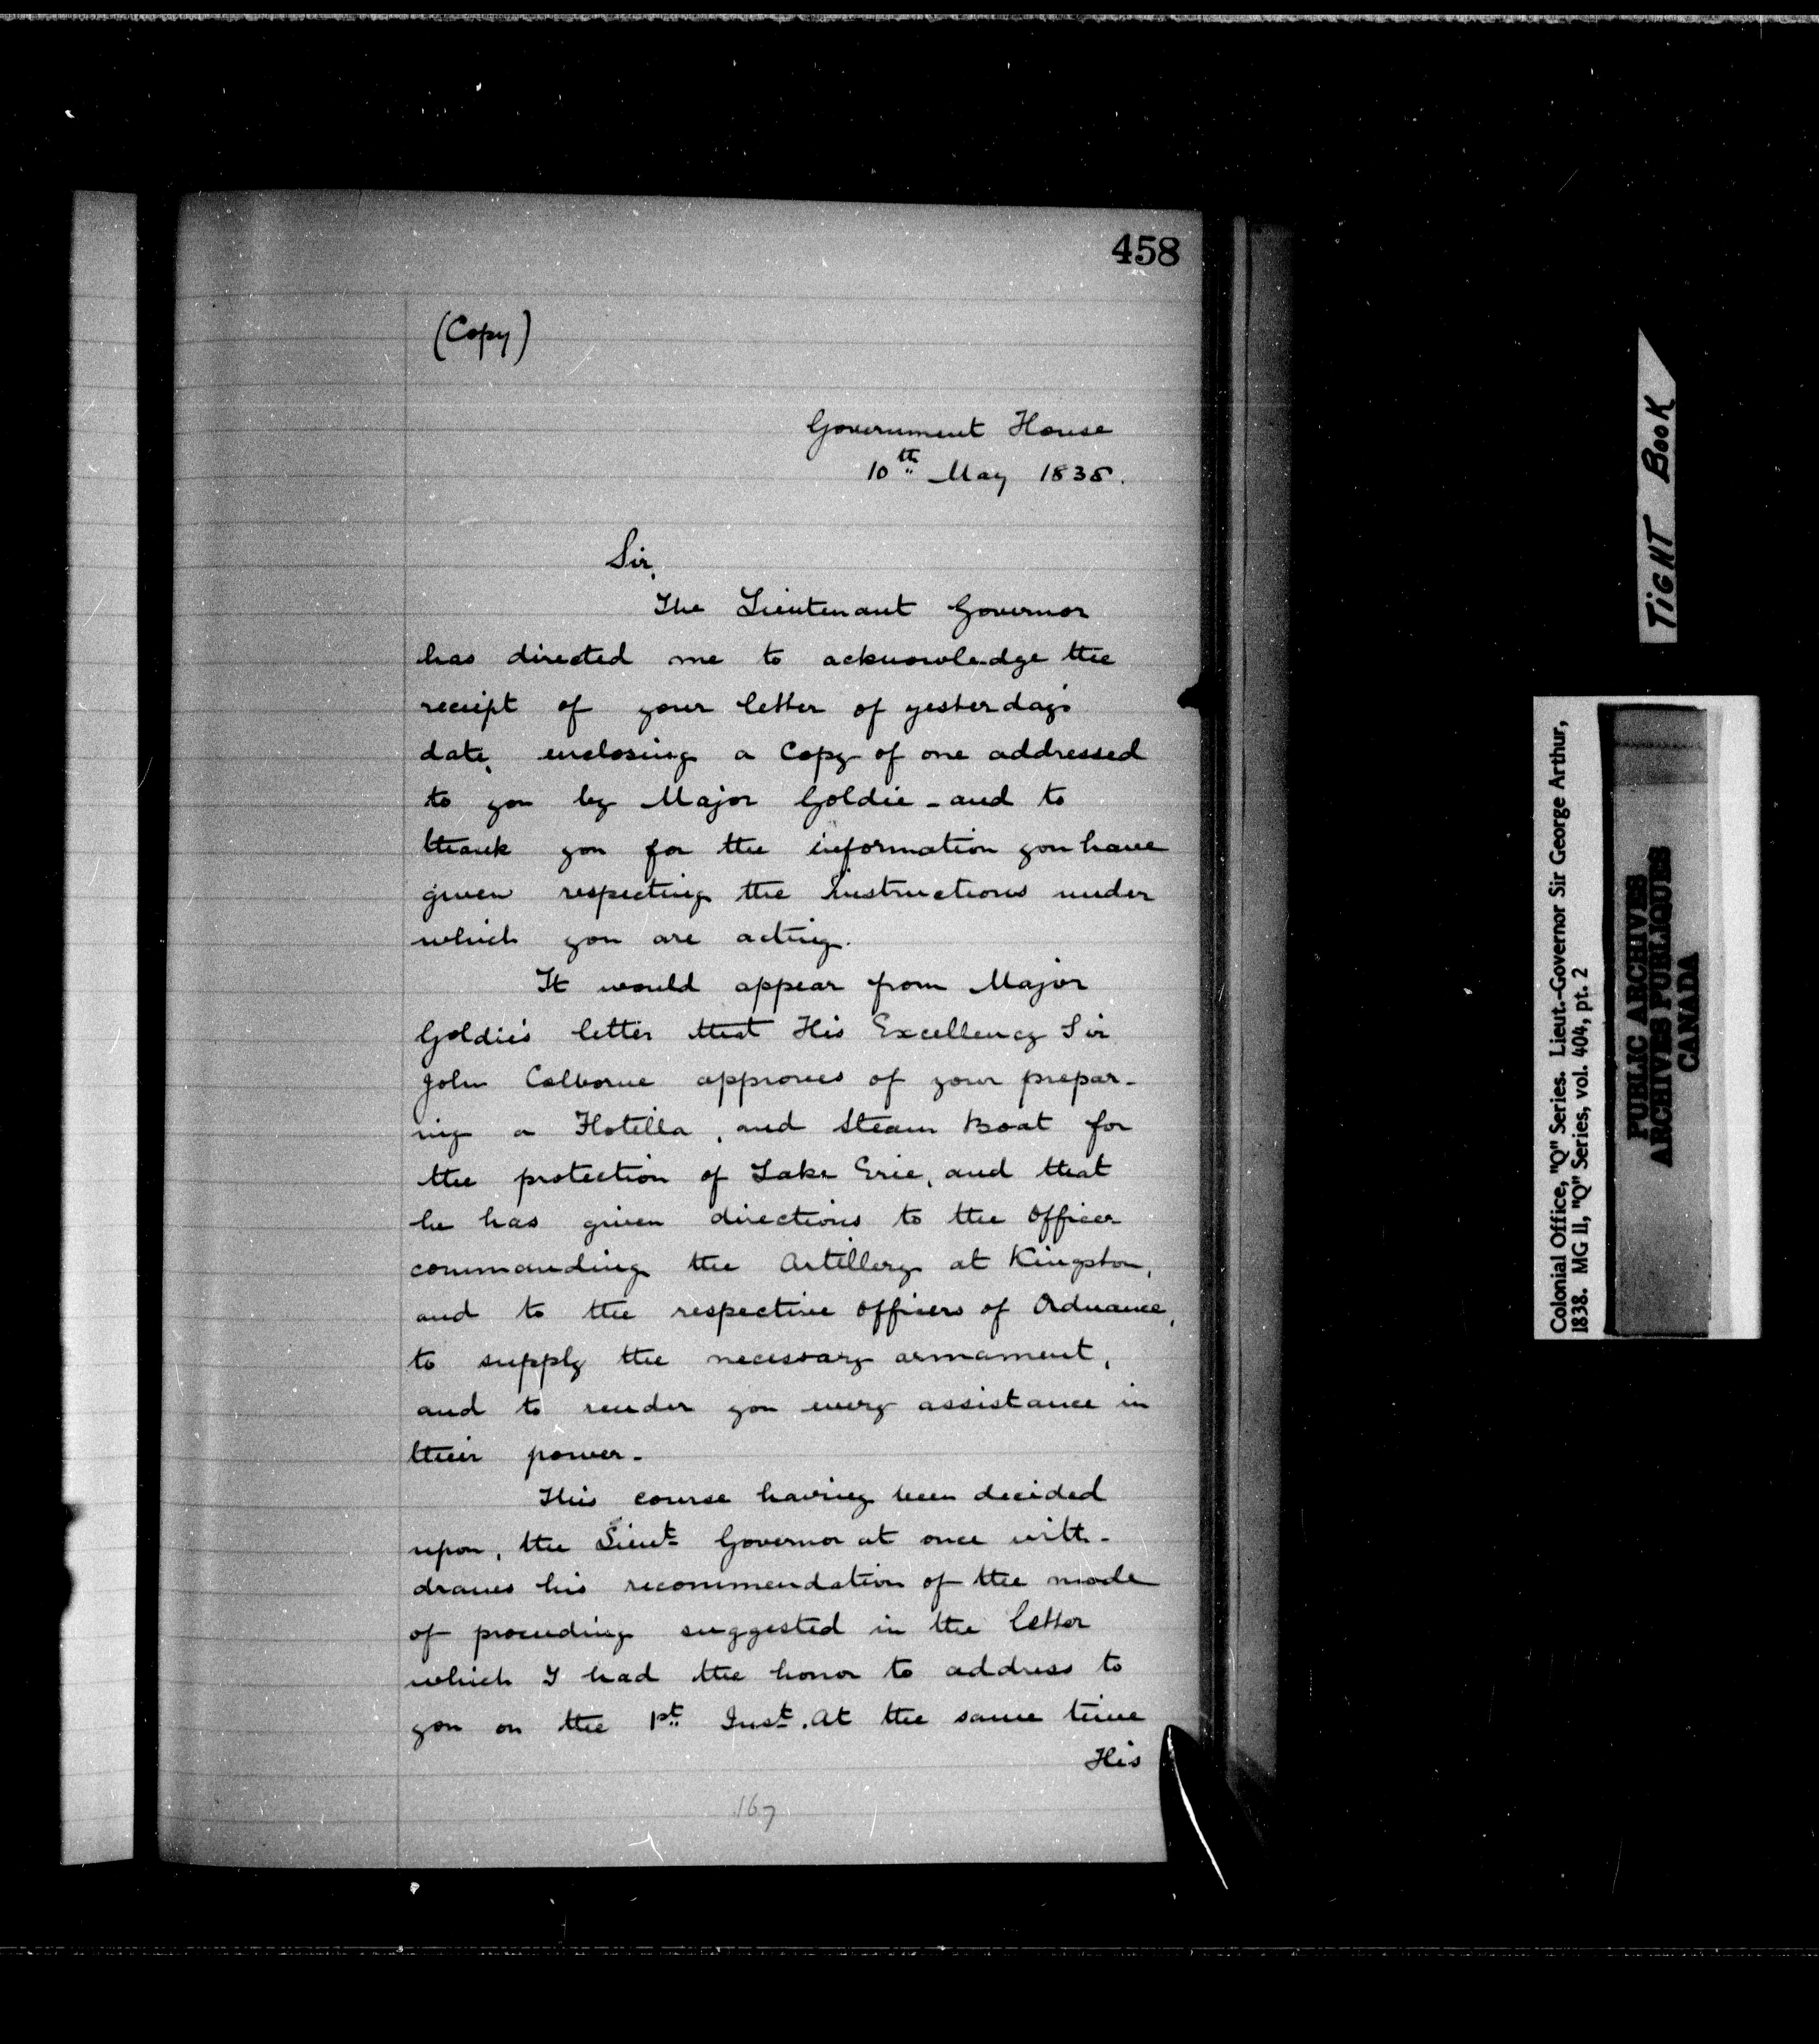 458
(Copy)
Government House
10th May 1838.
Sir,
The Lieutenant Governor
has directed me to acknowledge the
receipt of your letter of yesterday's
date, enclosing a Copy of one addressed
to you by Major Goldie - and to
thank you for the information you have
given respecting the instructions under
which you are acting.
It would appear from Major
Goldie's letter that His Excellency Sir
John Colborne approves of your prepar-
ing a Flotilla, and Steam Boat for
the protection of Lake Erie, and that
he has given directions to the Officer
commanding the Artillery at Kingston,
and to the respective Officers of Ordnance,
to supply the necessary armament,
and to render you every assistance in
their power.
This course having been decided
upon, the Lieut Governor at once with-
draws his recommendation of the mode
of proceeding suggested in the letter
which I had the honor to address to
you on the 1st Inst. At the same time
His
167
TIGHT BOOK
Colonial Office, "Q" Series. Lieut.-Governor Sir George Arthur,
1838. MG 11, "Q" Series, vol. 404, pt. 2
PUBLIC ARCHIVES
ARCHIVES PUBLIQUES
CANADA